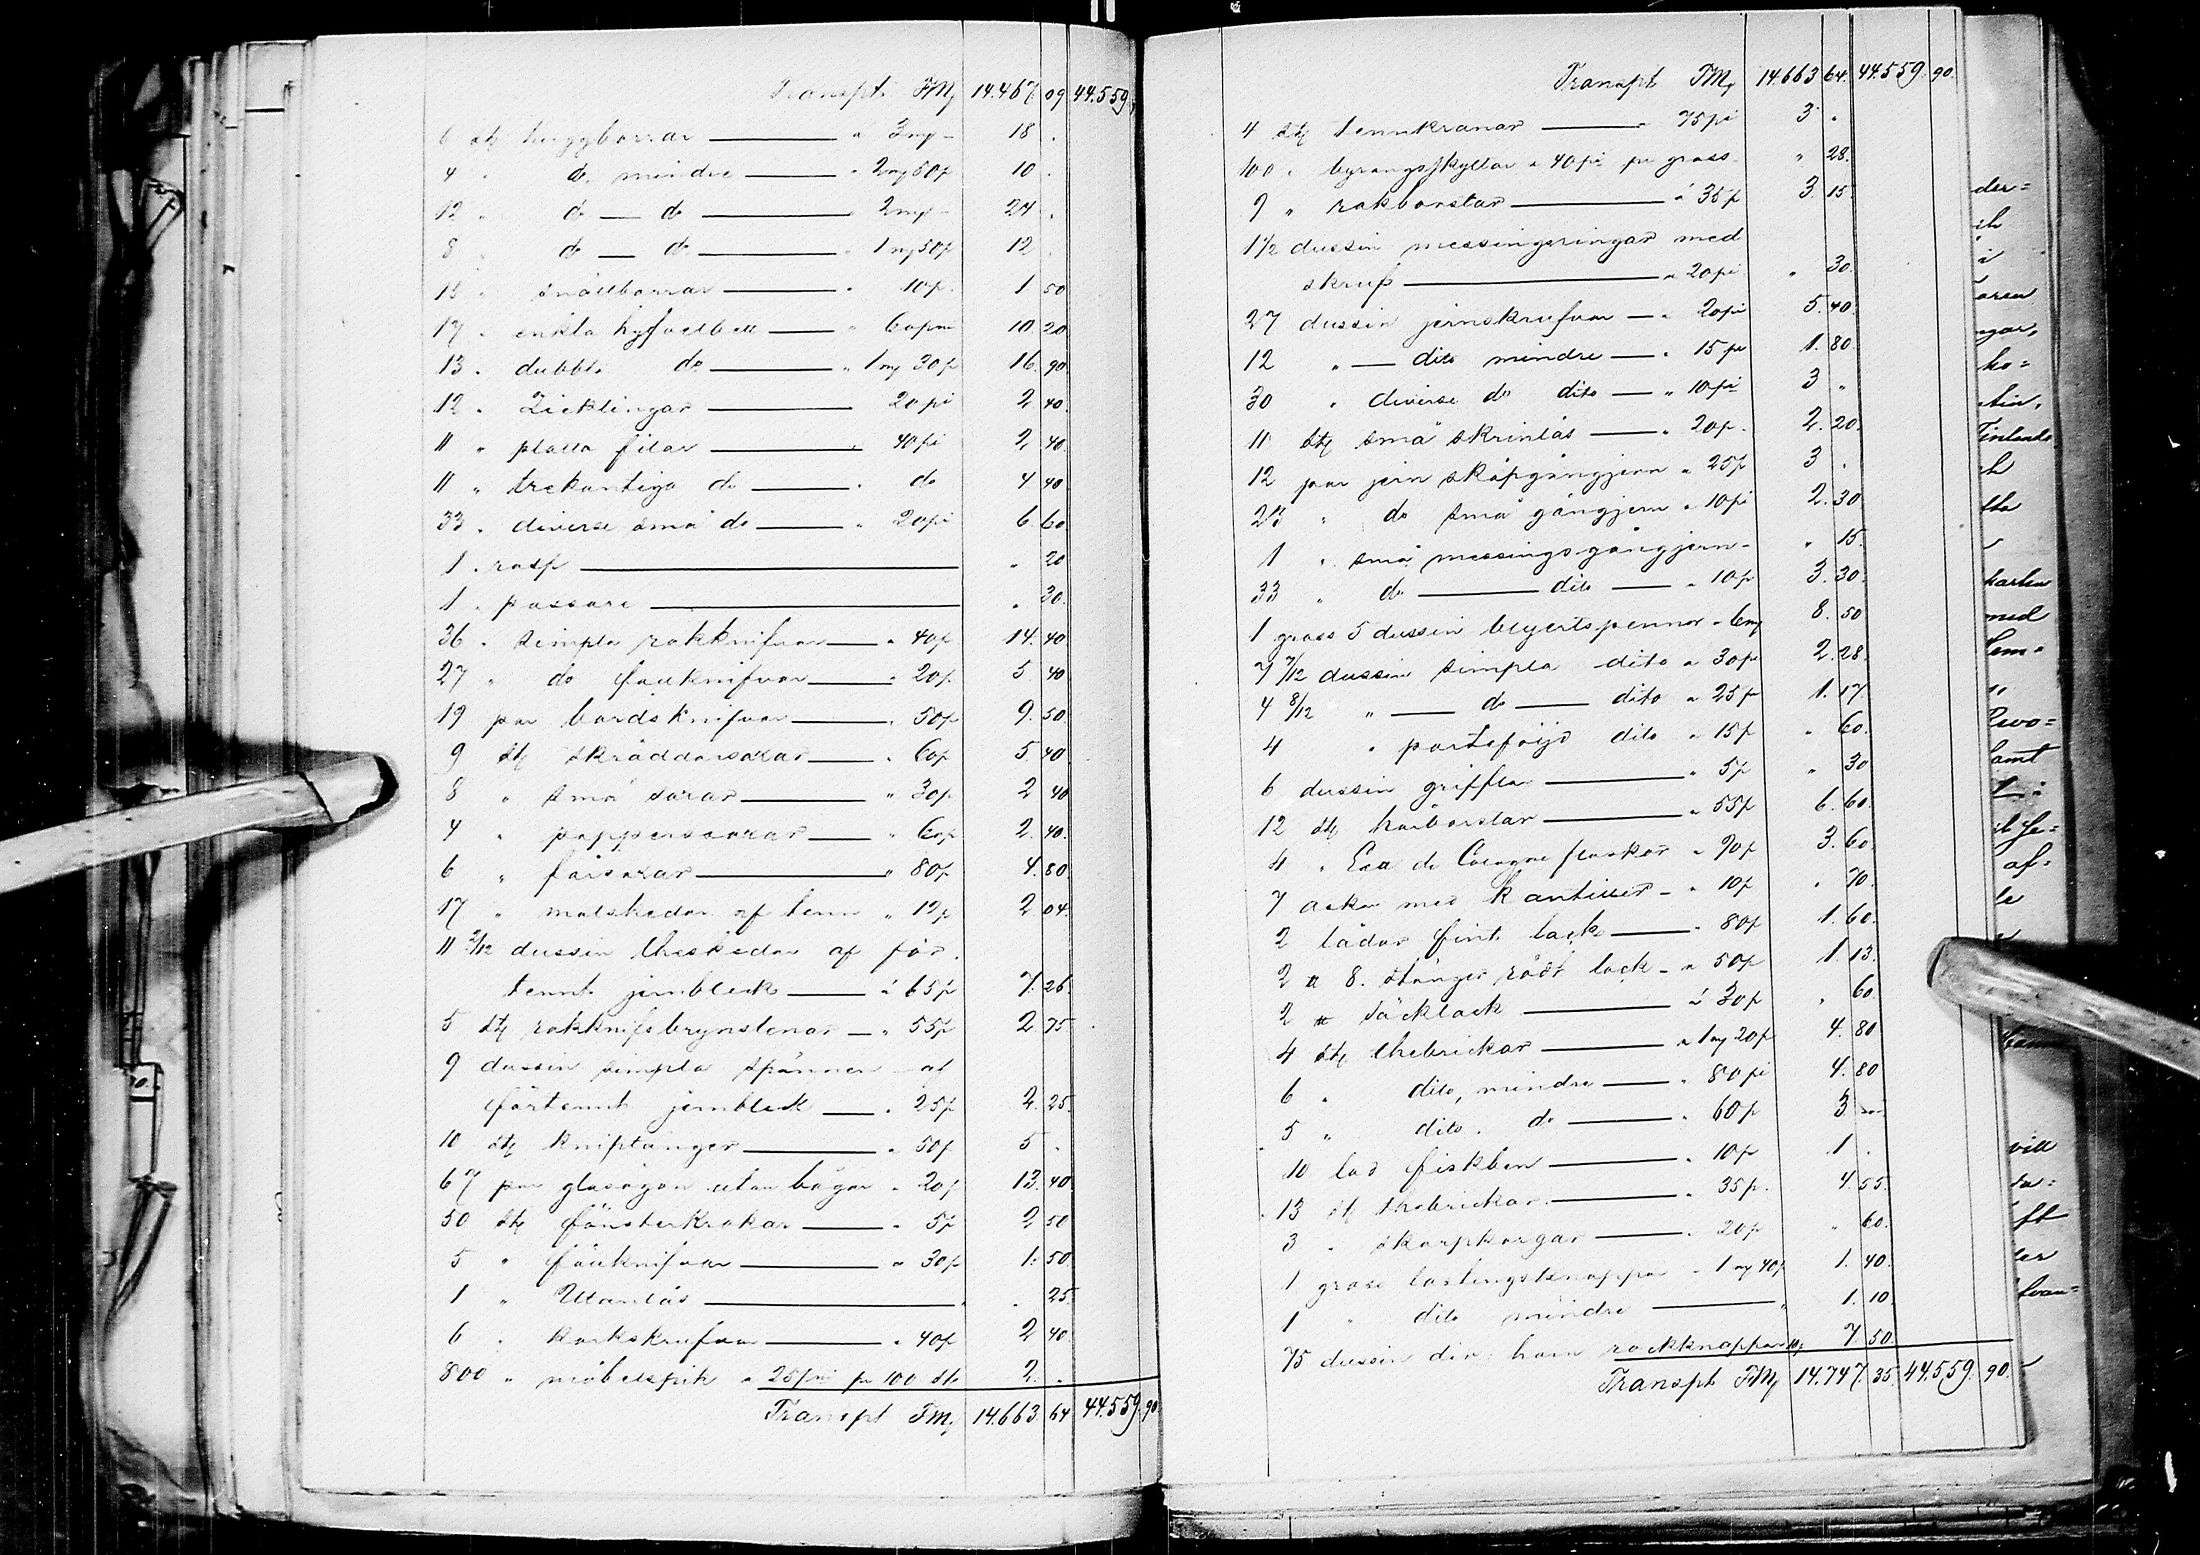 Transpt. FMg 14.467 09 44.559
6 stg huggborrar — a 3mg - 18 .
4 " do mindre — " 2mg 50p 10 .
12 " do — do — " 2mg - 24 .
8 " do — do — " 1mg 50p 12 .
15 " snällborrar — " 10p. 1 50
17 " enkla hyfvelbett — " 60pni 10 20
13 " dubbl. do — " 1mg 30p 16. 90
12 " Zicklingar — 20pi 2 40.
11 " platta filar — " 40pi 2 40.
11 " trekantiga do — " do 4 40.
33 " diverse små do — " 20pi 6 60
1 " rasp — " 20
1 " passare — " 30.
36 " simpla rakknifvar — " 40p 14. 40
27 " do fällknifvar — " 20p 5 40
19 par bordsknifvar — " 50p 9. 50
9 stg skräddarsaxar — " 60p 5 40
8 " små saxar — " 30p 2 40
4 " papperssaxar — " 60p 2. 40.
6 " fårsaxar — " 80p 4. 80
17 " matskedar af tenn " 12p 2 04.
11 2/12 dussin theskedar af för-
tennt jernbleck — á 65p 7. 26.
5 stg rakknifsbrynstenar — " 55p 2 75
9 dussin simpla spännen af
förtennt jernbleck — " 25p 2. 25.
10 stg kniptänger — " 50p 5 .
67 par glasögon utan bågar " 20p 13. 40
50 stg fönsterkrokar — " 5p 2 50
5 " fällknifvar — " 30p 1. 50
1 " Utanlås — " . 25
6 " korkskrufvar — " 40p 2 40
800 " möbelspik a 25pni pr 100 st. 2. .
Transpt FMg 14.663. 64 44.559. 90
Transpt FMg 14.663 64. 44.559. 90.
4 stg tennkranar — " 75pi 3 .
100 " byrångsskyltar a 40pi pr gross " 28.
9 " rakborstar — á 35p 3. 15.
1 1/2 dussin messingsringar med
skruf — a 20pi " 30.
27 dussin jernskrufvar — " 20pi 5. 40.
12 " — dito mindre — " 15pi 1. 80.
30 " diverse do dito — " 10pi 3 "
11 stg små skrinlås — " 20p. 2. 20.
12 par jern skåpgångjern a 25p 3 .
23 " do små gångjern " 10pi 2. 30
1 " små messings-gångjern - " 15.
33 " do — dito — " 10p 3. 30.
1 gross 5 dussin blyertspennor - 6mg 8. 50
7 7/12 dussin simpla dito a 30p 2. 28.
4 8/12 " — do — dito a 25p 1. 17.
4 " portefölj dito a 15p " 60.
6 dussin grifflar — " 5p " 30
12 stg hårborstar — " 55p 6. 60.
4 " Eau de Cologne flaskor " 90p 3. 60.
7 askar med kantiller - " 10p " 70.
2 lådor fint lack — " 80p 1. 60.
2 a 8. stänger rödt lack - a 50p 1. 13.
2 " säcklack — á 30p " 60
4 stg thebrickor — a 1mg 20p 4. 80
6 " dito, mindre — " 80pi 4. 80
5 " dito. do — " 60p 3 —
10 lod fiskben — " 10p 1 .
13 st thebrickor — " 35p. 4. 55.
3 " skorpkorgar — " 20p " 60.
1 gross lastingsknappar " 1mg 40p 1. 40.
1 " dito mindre — " 1. 10.
75 dussin div. horn rockknappar 7. 50.
Transpt FMg 14.747. 35. 44.559. 90.
med
samt
af-
vill